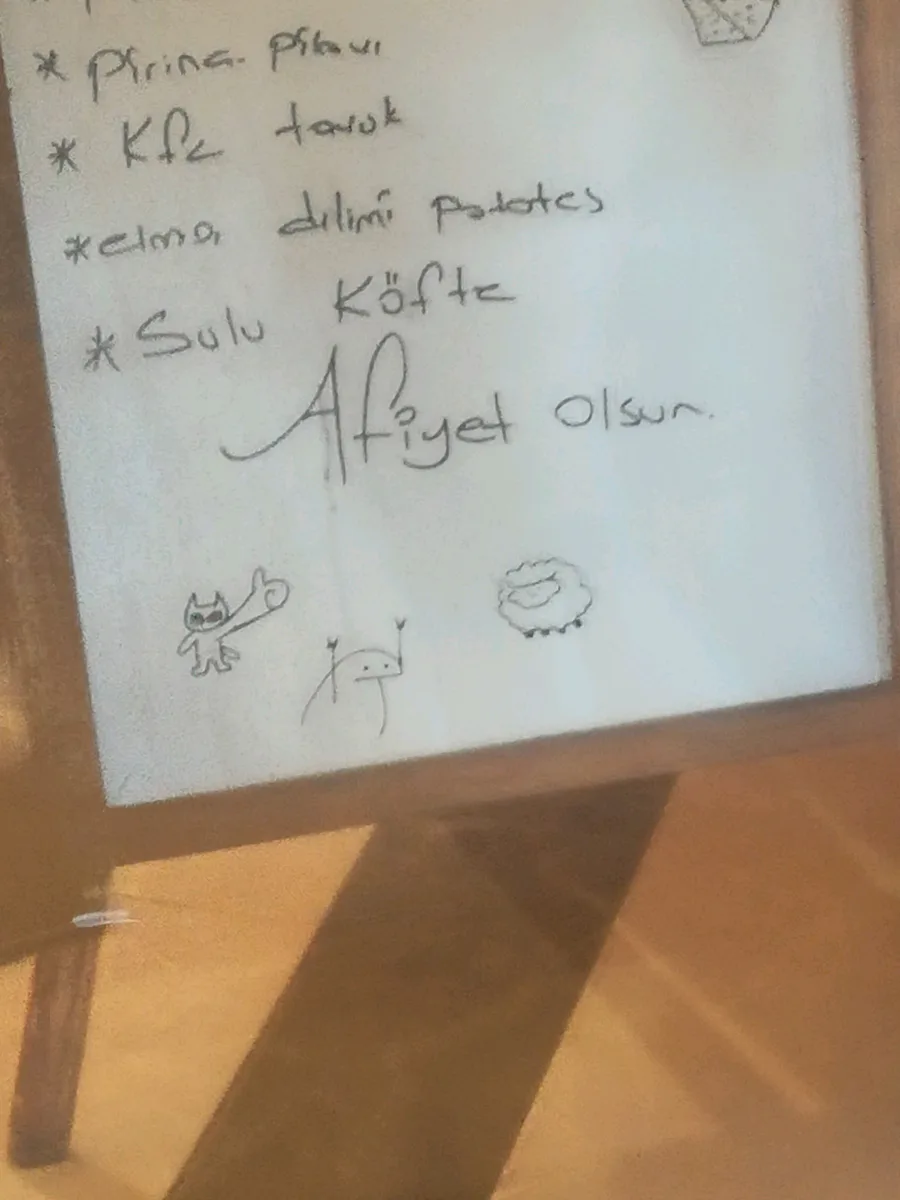 * Pirinç Pilavı
* Kfc tavuk
* elma dilimi patates
* Sulu Köfte
Afiyet Olsun.